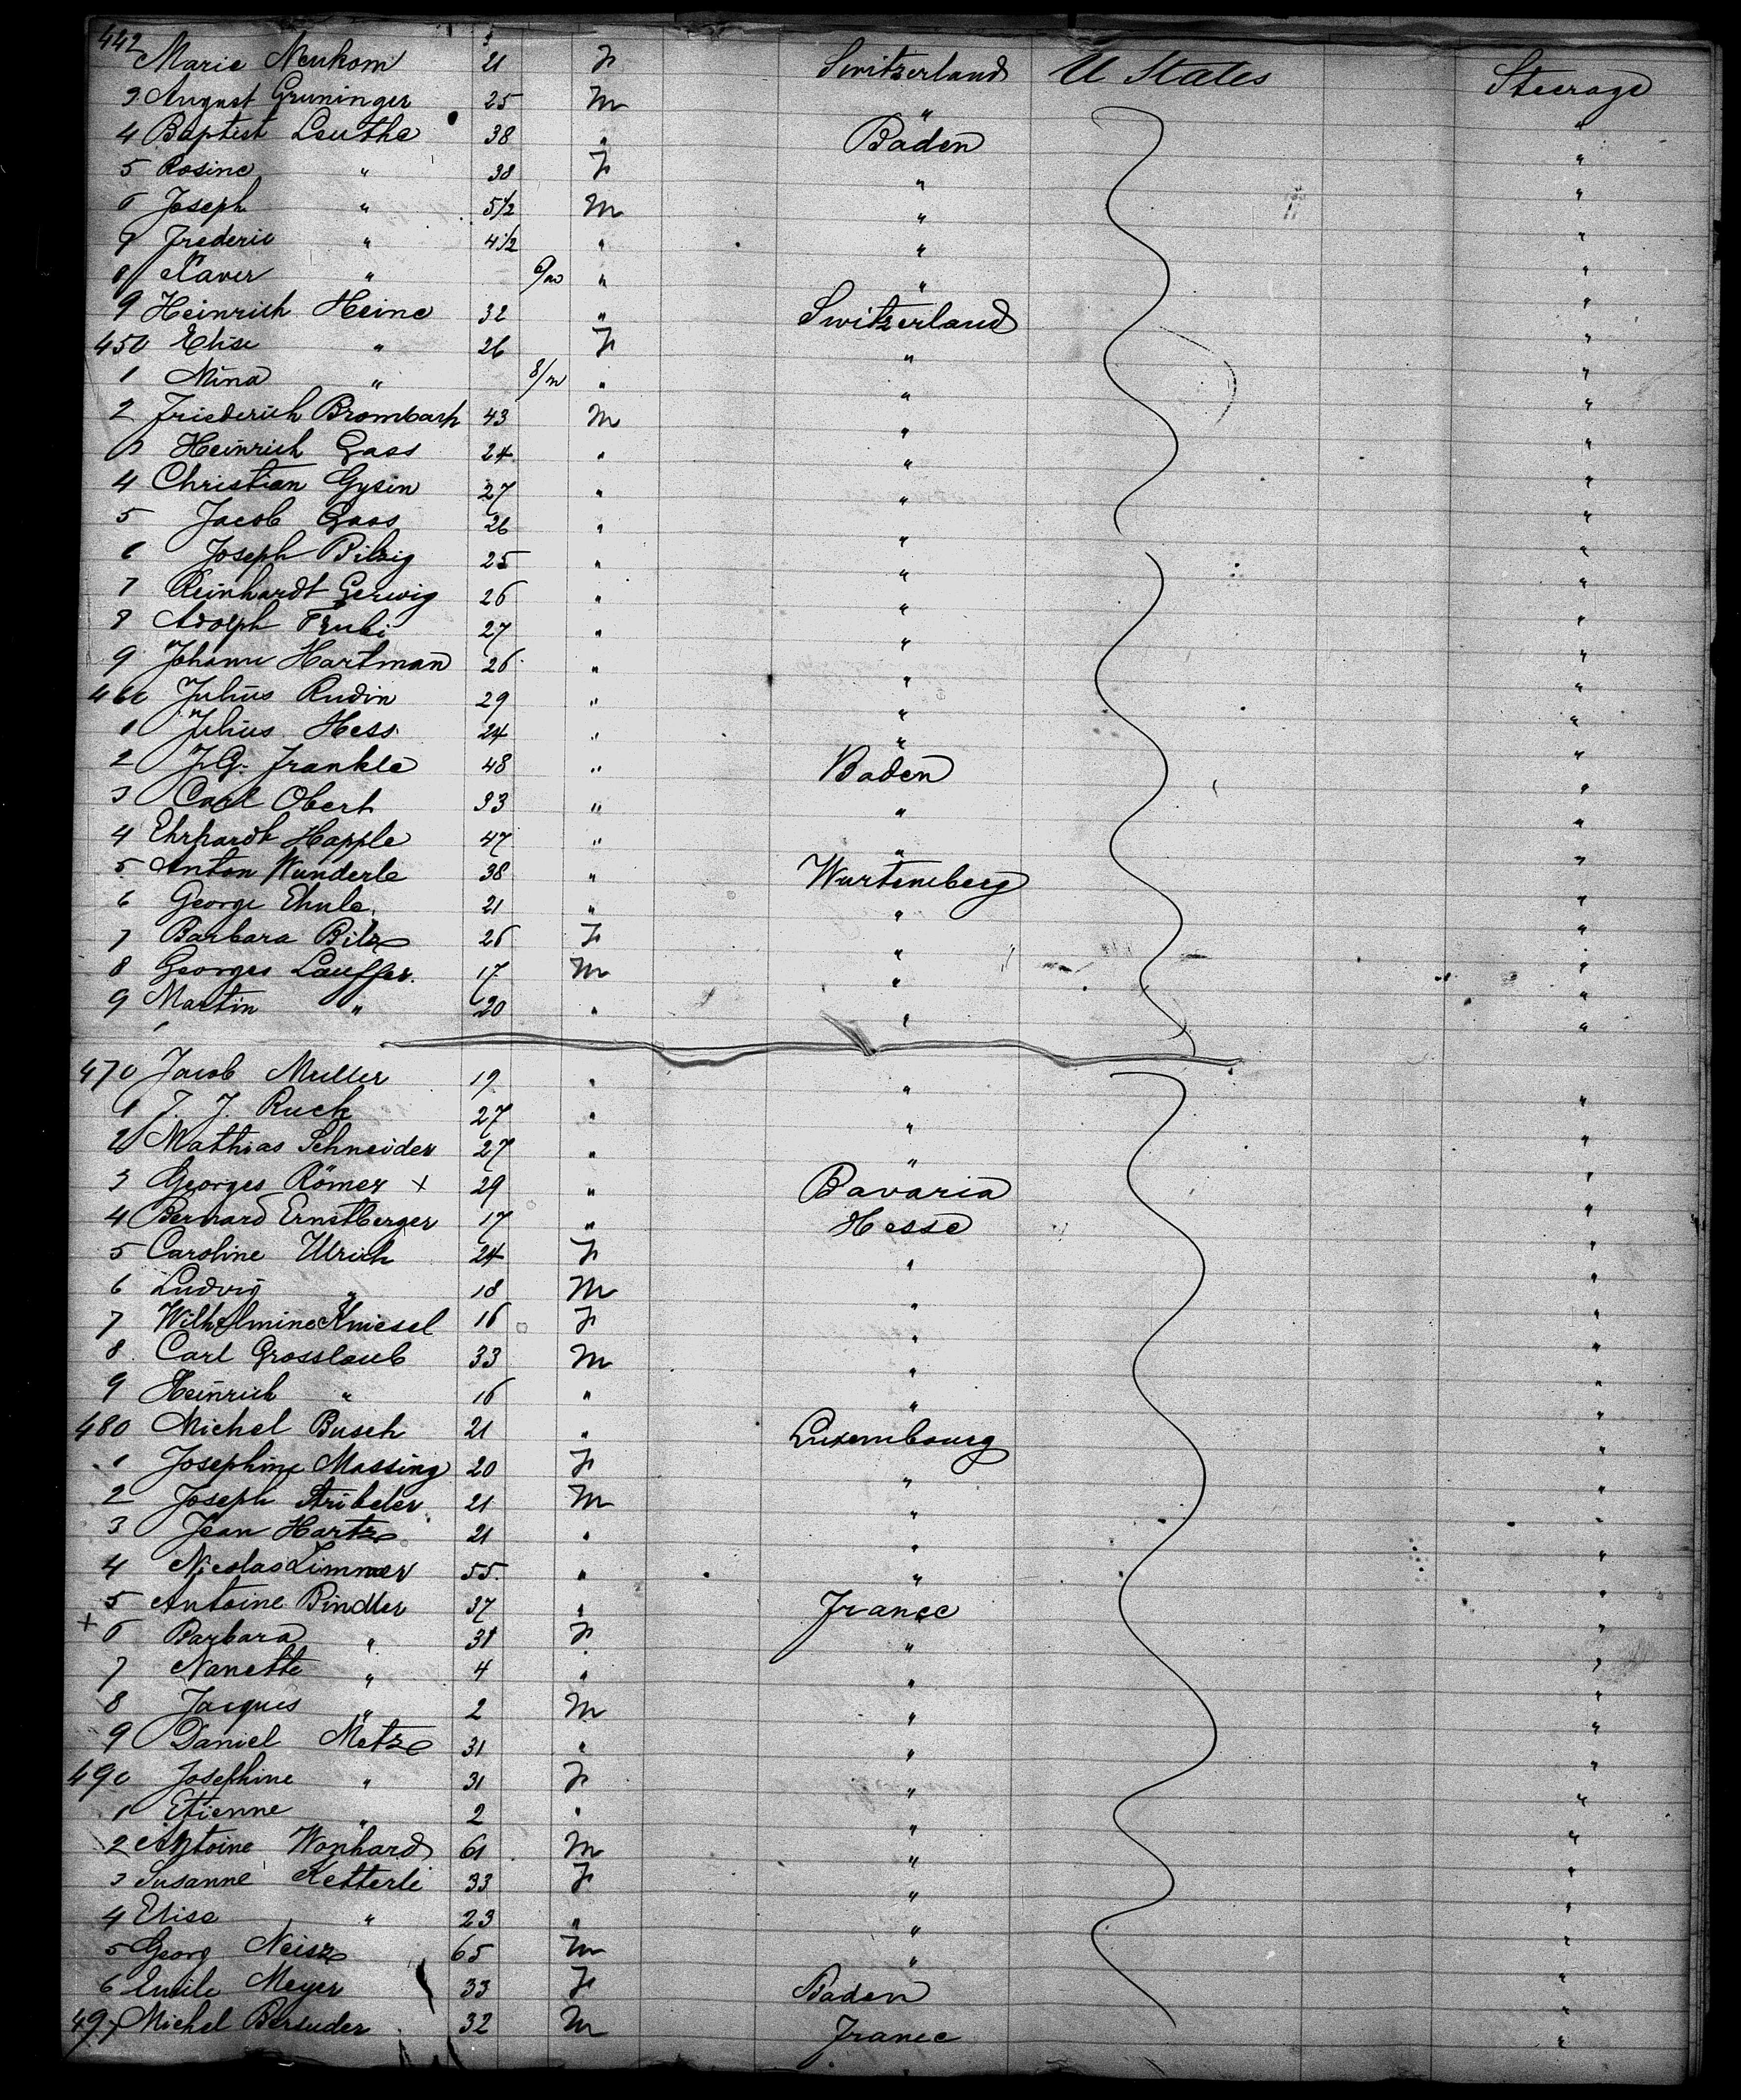 442 Marie Neukom 21 F Switzerland U States Steerage
3 August Gruninger 25 M " "
4 Baptist Leuthe 38 " Baden "
5 Rosine " 38 F " "
6 Joseph " 5 1/2 M " "
7 Frederic " 4 1/2 " " "
8 Xaver " 9/m " " "
9 Heinrich Heine 32 " Switzerland "
450 Elise " 26 F " "
1 Nina " 8/m " " "
2 Friederich Brombach 43 M " "
3 Heinrich Gass 24 " " "
4 Christian Gysin 27 " " "
5 Jacob Gass 26 " " "
6 Joseph Bilzig 25 " " "
7 Reinhardt Gerwig 26 " " "
8 Adolph 27 " " "
9 Johann Hartman 26 " " "
460 Julius Rudin 29 " " "
1 Julius Hess 24 " " "
2 J. G. Frankle 48 " Baden "
3 Carl Obert 33 " " "
4 Ehrhardt Happle 47 " " "
5 Anton Wunderle 38 " Wurtemberg "
6 George Ehnle 21 " " "
7 Barbara Bilz 26 F " "
8 Georges Lauffer 17 M " "
9 Martin " 20 " " "
470 Jacob Muller 19 " " "
1 J. J. Ruck 27 " " "
2 Mathias Schneider 27 " " "
3 Georges Römer + 29 " Bavaria "
4 Bernard Ernstberger 17 " Hesse "
5 Caroline Ulrich 24 F " "
6 Ludvig " 18 M " "
7 Wilhelmine Kniesel 16 F " "
8 Carl Grosslaub 33 M " "
9 Heinrich " 16 " " "
480 Michel Busch 21 " Luxembourg "
1 Josephine Massing 20 F " "
2 Joseph 21 M " "
3 Jean Hartz 21 " " "
4 Nicolas Zimmer 55 " " "
5 Antoine Bindler 37 " France "
+ 6 Barbara " 31 F " "
7 Nanette " 4 " " "
8 Jacques " 2 M " "
9 Daniel Metz 31 " " "
490 Josephine " 31 F " "
1 Etienne " 2 " " "
2 Antoine Wonhard 61 M " "
3 Susanne Ketterli 33 F " "
4 Elise " 23 " " "
5 Georg Neisz 65 M " "
6 Emile Meyer 33 F Baden "
497 Michel Bersuder 32 M France "